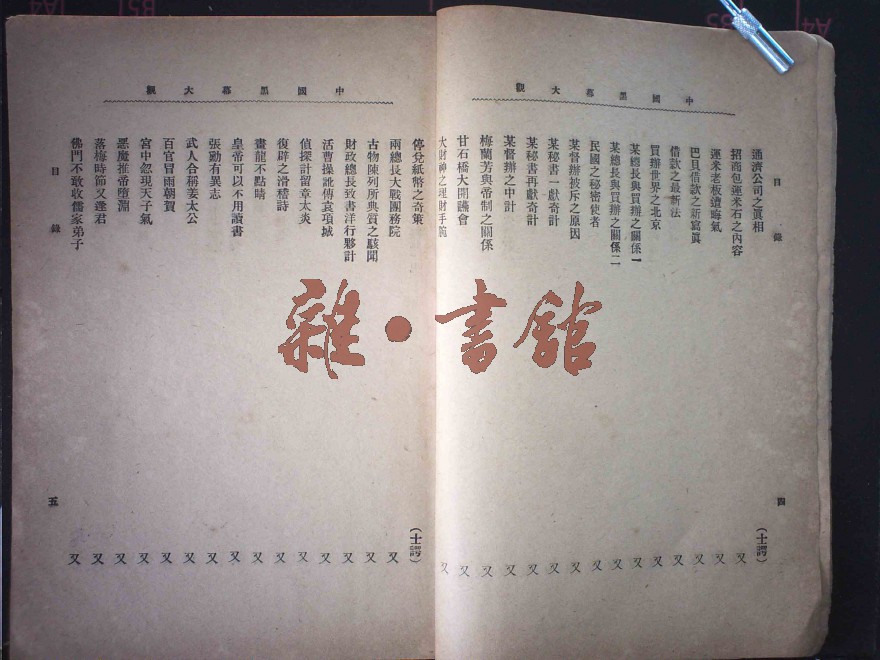 中國黑幕大觀
目錄
通濟公司之眞相 (士諤)
招商包運米石之內容 又
運米老板遭晦氣 又
巴貝借款之新寫眞 又
借款之最新法 又
買辦世界之北京 又
某總長與買辦之關係一 又
某總長與買辦之關係二 又
民國之秘密使者 又
某督辦披斥之原因 又
某秘書一獻奇計 又
某秘書再獻奇計 又
某督辦之中計 又
梅蘭芳與帝制之關係 又
甘石橋大開議會 又
大財神之理財手腕 又
四
中國黑幕大觀
停兌紙幣之奇策 (士諤)
兩總長大戰國務院 又
古物陳列所典質之駭聞 又
財政總長致書洋行夥計 又
活曹操訛傳袁項城 又
偵探計留章太炎 又
復辟之滑稽詩 又
畫龍不點睛 又
皇帝可以不用讀書 又
張勳有異志 又
武人合稱姜太公 又
百官冒雨朝賀 又
宮中忽現天子氣 又
惡魔推帝墮淵 又
落梅時節又逢君 又
佛門不敢收儒家弟子 又
目錄
五
雜·書館
A4
B5
B5
A4